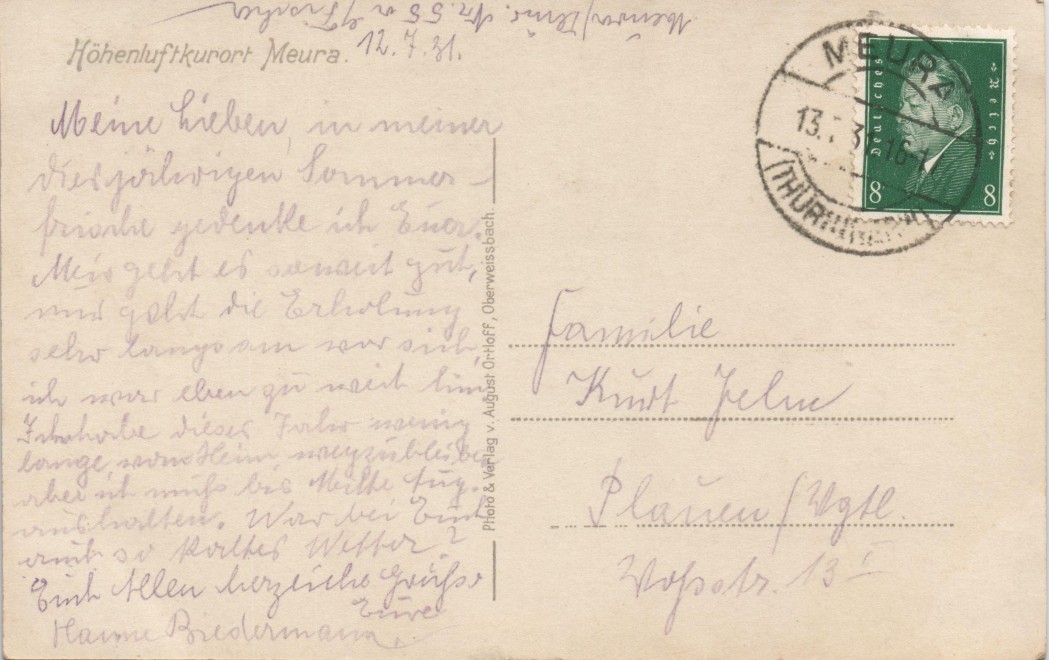 Höhenluftkurort Meura. 12.7.31.
Meine Lieben, in meiner
diesjährigen Sommer-
frische gedenke ich Euer.
Mir geht es soweit gut,
nur geht die Erholung
sehr langsam vor sich,
ich war eben zu weit
Ich habe dieses Jahr wenig
lange, vom Heim wegzubleiben
aber ich muß bis Mitte Aug.
aushalten. War bei Euch
auch so kaltes Wetter?
Euch Allen herzliche Grüße
Eure
Hanne Biedermann.
Photo & Verlag v. August Ortloff, Oberweissbach.
MEURA
13. 31.16-
(THÜRINGERW)
Deutsches Reich
8 8
Familie
Kurt
Plauen/Vgtl.
Voßstr. 13 I